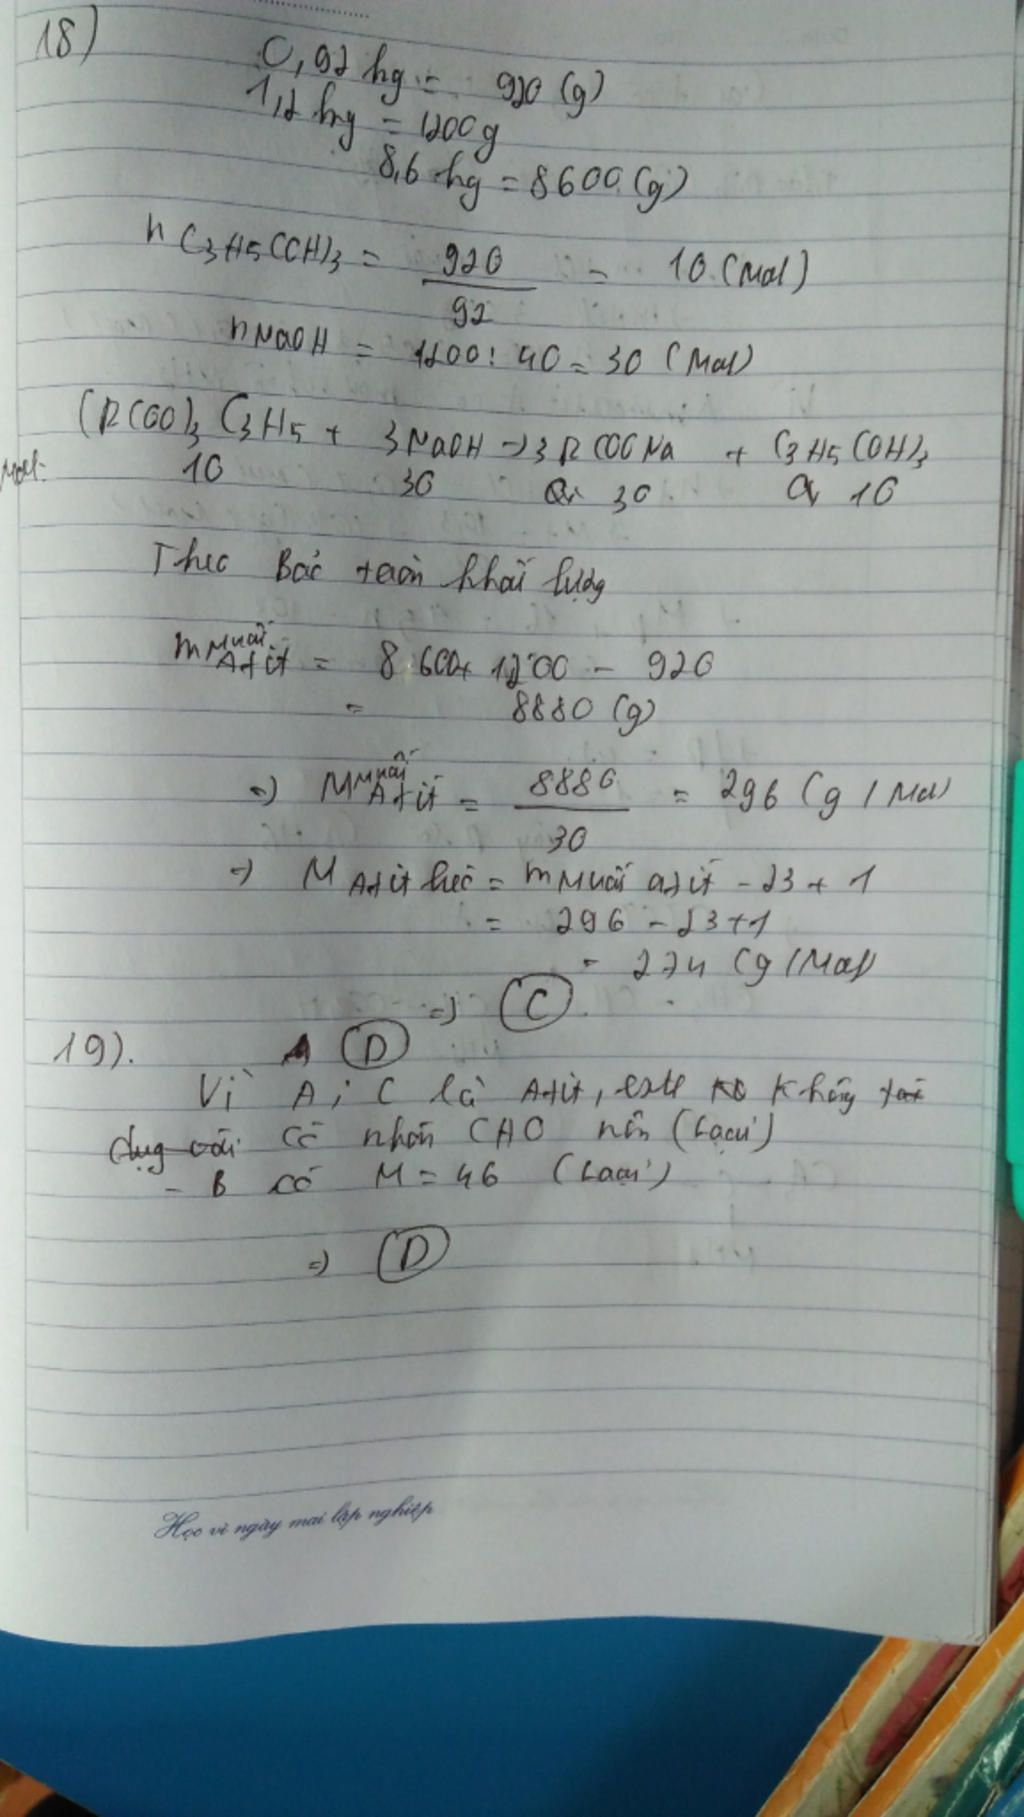 18)
0,92 kg = 920 (g)
1,2 kg = 1200g
8,6 kg = 8600 (g)
n C3H5(OH)3 = 920/92 = 10 (Mol)
nNaOH = 1200 : 40 = 30 (Mol)
(RCOO)3 C3H5 + 3NaOH -> 3RCOONa + C3H5(OH)3
Mol: 10 30 30 10
Theo Bảo toàn khối lượng
m Muối Axit = 8600 + 1200 - 920
= 8880 (g)
=) M Muối Axit = 8880/30 = 296 (g/Mol
=) M Axit béo = m Muối axit - 23 + 1
= 296 - 23 + 1
= 274 (g/Mol)
=) (C).
19). A (D)
Vì A; C là Axit, este Không
có nhóm CHO nên (Loại)
- B có M = 46 (Loại)
=) (D)
Học vì ngày mai lập nghiệp